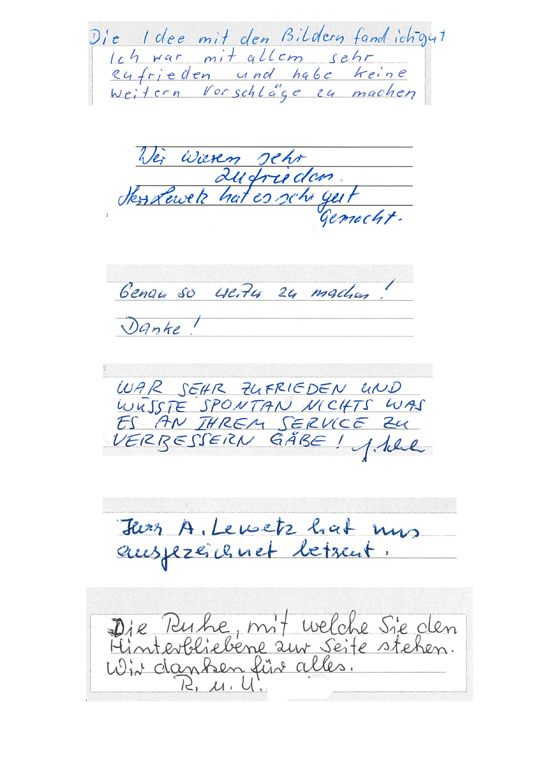 Die Idee mit den Bildern fand ich gut
Ich war mit allem sehr
zufrieden und habe keine
weitern Vorschläge zu machen
Wir waren sehr
zufrieden.
Herr Lewetz hat es sehr gut
Gemacht.
Genau so weiter zu machen!
Danke!
WAR SEHR ZUFRIEDEN UND
WÜSSTE SPONTAN NICHTS WAS
ES AN IHREM SERVICE ZU
VERBESSERN GÄBE!
Herr A. Lewetz hat uns
ausgezeichnet betreut.
Die Ruhe, mit welche Sie den
Hinterbliebene zur Seite stehen.
Wir danken für alles.
R. u. U.